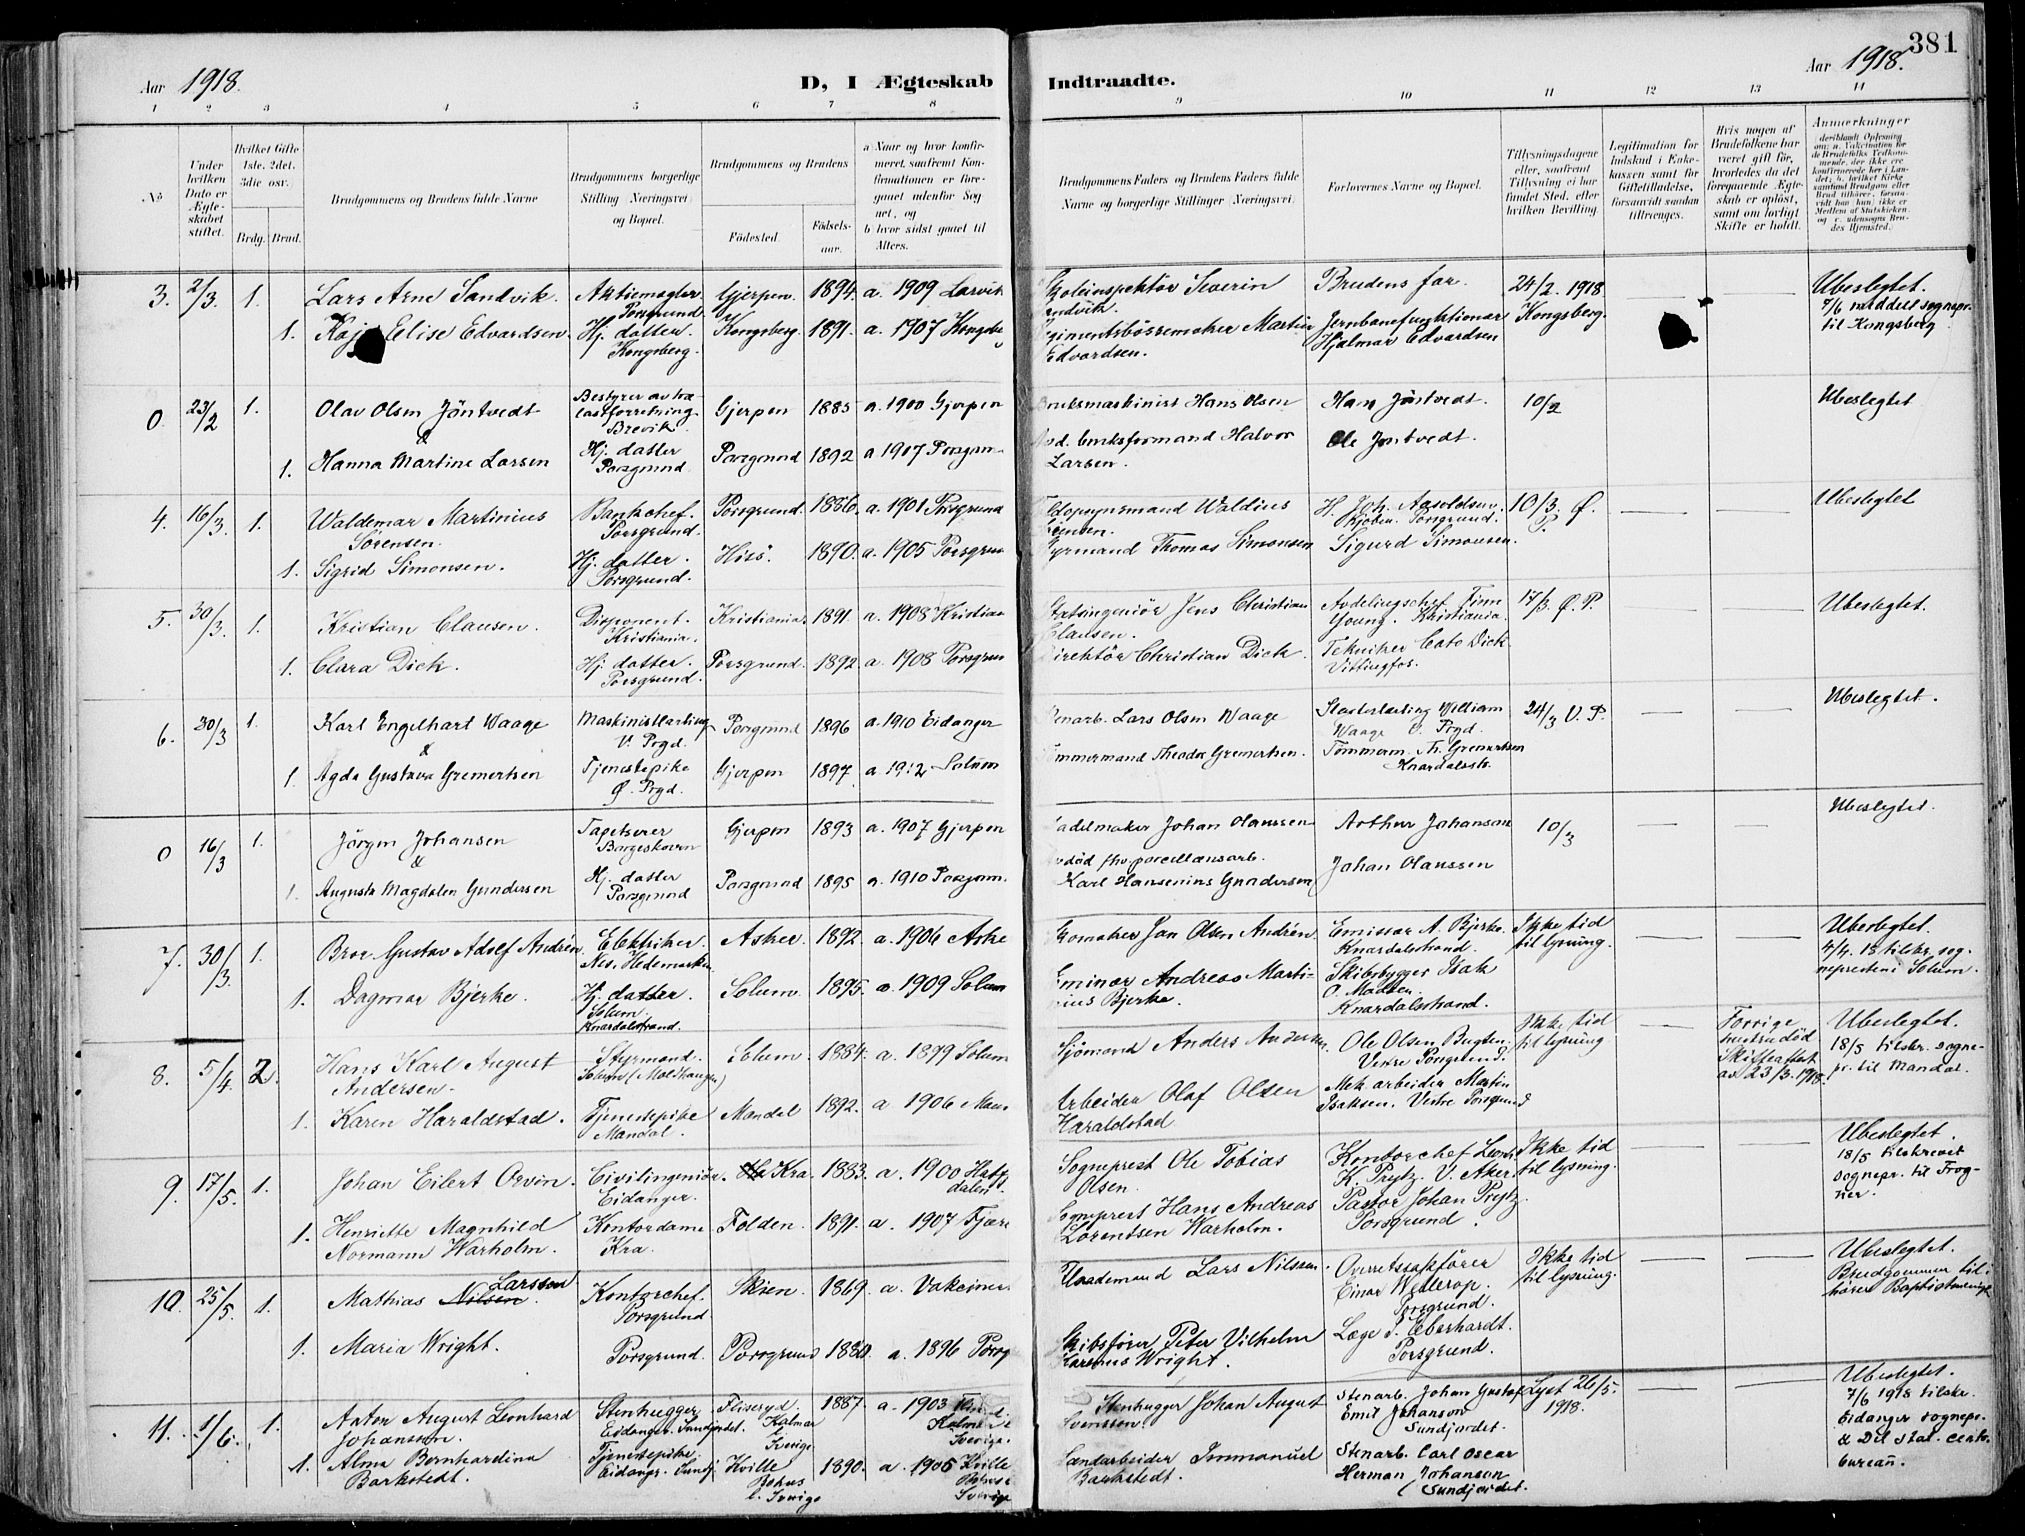 381
Aar 1918.
D, I Ægteskab Indtraadte.
Aar 1918.
1 2 3 4 5 6 7 8 9 10 11 12 13 14
No
Under hvilken Dato er Ægteskabet stiftet.
Hvilket Gifte 1ste, 2det, 3die osv.
Brdg. Brud.
Brudgommens og Brudens fulde Navne
Brudgommens borgerlige Stilling Næringsvei og Bopæl.
Brudgommens og Brudens
Fødested.
Fødselsaar.
a Naar og hvor konfirmeret, saafremt Konfirmationen er foregaaet udenfor Sognet, og
b hvor sidst gaaet til Alters.
Brudgommens Faders og Brudens Faders fulde Navne og borgerlige Stillinger (Næringsvei.
Forlovernes Navne og Bopæl.
Tillysningsdagene eller, saafremt Tillysning ei har fundet Sted, efter hvilken Bevilling.
Legitimation for Indskud i Enkekassen samt for Giftetilladelse, forsaavidt saadan tiltrenges.
Hvis nogen af Brudefolkene har været gift før, hvorledes da det foregaaende Ægteskab er opløst, samt om lovligt Skifte er holdt.
Anmærkninger
3. 2/3. 1. Lars Arne Sandvik. Aktiemægler. Porsgrund. Gjerpen. 1894. a. 1909 Larvik
Skoleinspektör Severin Sandvik Brudens far. 24/2. 1918 Kongsberg. Ubeslegtet. 7/6 meddelt sognepr. til Kongsberg
1. Kaja Elise Edvardsen. Hj. datter. Kongsberg. Kongsberg. 1891. a. 1907 Kongsbe
Martin Edvardsen. Jernbanefunktionær Hjalmar Edvardsen
0. 23/2 1. Olav Olsen Jöntvedt Bestyrer av Brevik. Gjerpen 1885 a. 1900 Gjerpen
Bruksmaskinist Hans Olsen Hans Jöntvedt. 10/2 Ubeslegtet
&
1. Hanna Martine Larsen Hj. datter Porsgrund Porsgrund 1892 a 1907 Porsgrun
bruksformand Halvor Larsen. Ole Jöntvedt.
4. 16/3. 1. Waldemar Martinius Sörensen. Bankchef. Porsgrund. Porsgrund. 1886. a. 1901 Porsgrund
Waldius H. Joh. Aasoldsen. Porsgrund. 10/3. Ø. P. Ubeslegtet
1. Sigrid Simonsen. Hj. datter. Porsgrund. Hisö. 1890. a. 1905 Porsgrun
Styrmand Thomas Simonsen Sigurd Simonsen.
5. 30/3. 1. Kristian Clausen. Disponent. Kristiania. Kristiania 1891. a. 1908 Kristian
Statsingeniör Jens Christian Clausen. Avdelingschef Finn Young. Kristiania. 17/3. Ø. P. Ubeslegtet.
1. Clara Dick. Hj. datter. Porsgrund. Porsgrund. 1892. a. 1908 Porsgrun
Direktör Christian Dick. Tekniker Cato Dick Vittingfos.
6. 30/3 1. Karl Engelhart Waage Maskinistlærling V. Prgd. Porsgrund 1896 a. 1910 Eidanger
Lars Olsen Waage William Waage V. Prgd. 24/3 V. P. Ubeslegtet.
&
1 Agda Gustava Gremertsen Tjenestepike Ø. Prgd. Gjerpen 1897. a. 1912 Solum
Tømmermand Theodor Gremertsen. Tömmerm. Th. Gremertsen Knardalsstr.
0 16/3 1. Jörgen Johansen Tapetserer Borgeskoven Gjerpen 1893 a. 1907 Gjerpen
Sadelmaker Johan Olaussen Arthur Johansen 10/3 Ubeslegtet.
&
1. Augusta Magdalen Gundersen Hj. datter Porsgrund Porsgrund 1895 a. 1910 Porsgrun.
Avdöd fhv. porcellænsarb. Karl Hansenius Gundersen Johan Olaussen
7. 30/3. 1. Bror Gustav Adolf Andrén Elektriker. Nes. Hedemarken Asker. 1892. a. 1906 Aske
Skomaker Jan Olsen Andrén. Emissær A. Bjerke. Knardalstrand. Ikke tid til lysning. Ubeslegtet. 4/4. 18 tilskr. sognepresten i Solum.
1. Dagmar Bjerke. Hj. datter. Solum. Knardalstrand. Solum. 1895. a. 1909 Solum
Andreas Martinius Bjerke. Skibsbygger Isak O. Madsen. Knardalstrand.
8. 5/4. 2. Hans Karl August Andersen. Styrmand. Solum Solum. 1884. a. 1899 Solum
Sjömand Anders Andersen. Ole Olsen Vestre Porsgrund. Ikke tid til lysning Forrige hustru död Skifteattest av 23/3. 1918. Ubeslegtet. 18/5 tilskr. sognepr. til Mandal.
1. Karen Haraldstad. Tjenestepike Mandal. Mandal 1892. a 1906 Man
Arbeider Olaf Olsen Haraldstad Mek. arbeider Martin Isaksen. Vestre Porsgrund
9. 17/5. 1. Johan Eilert Orvin. Civilingeniör. Eidanger. Kra. 1883. a. 1900 Hatfjdalen
Sogneprest Ole Tobias Olsen. Kontorchef K. Prytz. V. Aker Ikke tid til lysning. Ubeslegtet. 18/5 tilskrevet sognepr. til Frogner.
1. Henriette Magnhild Normann Warholm. Kontordame Kra. Folden. 1891. a. 1907 Fjære
Sogneprest Hans Andreas Lorentsen Warholm. Pastor Johan Prytz. Porsgrund.
10. 25/5. 1. Mathias Nilsen. Larsson Kontorchef. Porsgrund Skien. 1869. a. Vakciner
Lars Nilssen. Overretssakförer Einar Porsgrund. Ikke tid til lysning. Ubeslegtet. Brudgommen tilhører Baptistmenigh.
1. Maria Wright. Porsgrund. Porsgrund 1880. a. 1896 Porsg
Skibsförer Peter Vilhelm Wright. Læge P. Eberhardt. Porsgrund.
11. 1/6. 1. Anton August Leonhard Johansson. Stenhugger Eidanger. Sundjordet. Fliseryd. Kalmar l. Sverige 1887. a. 1903 Kalmar l Sverige.
Stenhugger Johan August Svensson. Stenarb. Johan Gustaf Emil Johanson Sundjordet. Lyst 26/5. 1918. Ubeslegtet. 7/6 1918 tilskr. Eidanger sognepr. & Det stat. centr. bureau.
1. Alma Bernhardina Barkstedt. Tjenestepike Eidang. Sundj. Kville Bohus l. Sverige 1890. a. 1905 Kville Sverige
Immanuel Barkstedt. Stenarb. Carl Oscar Herman Johanson Sundjordet.